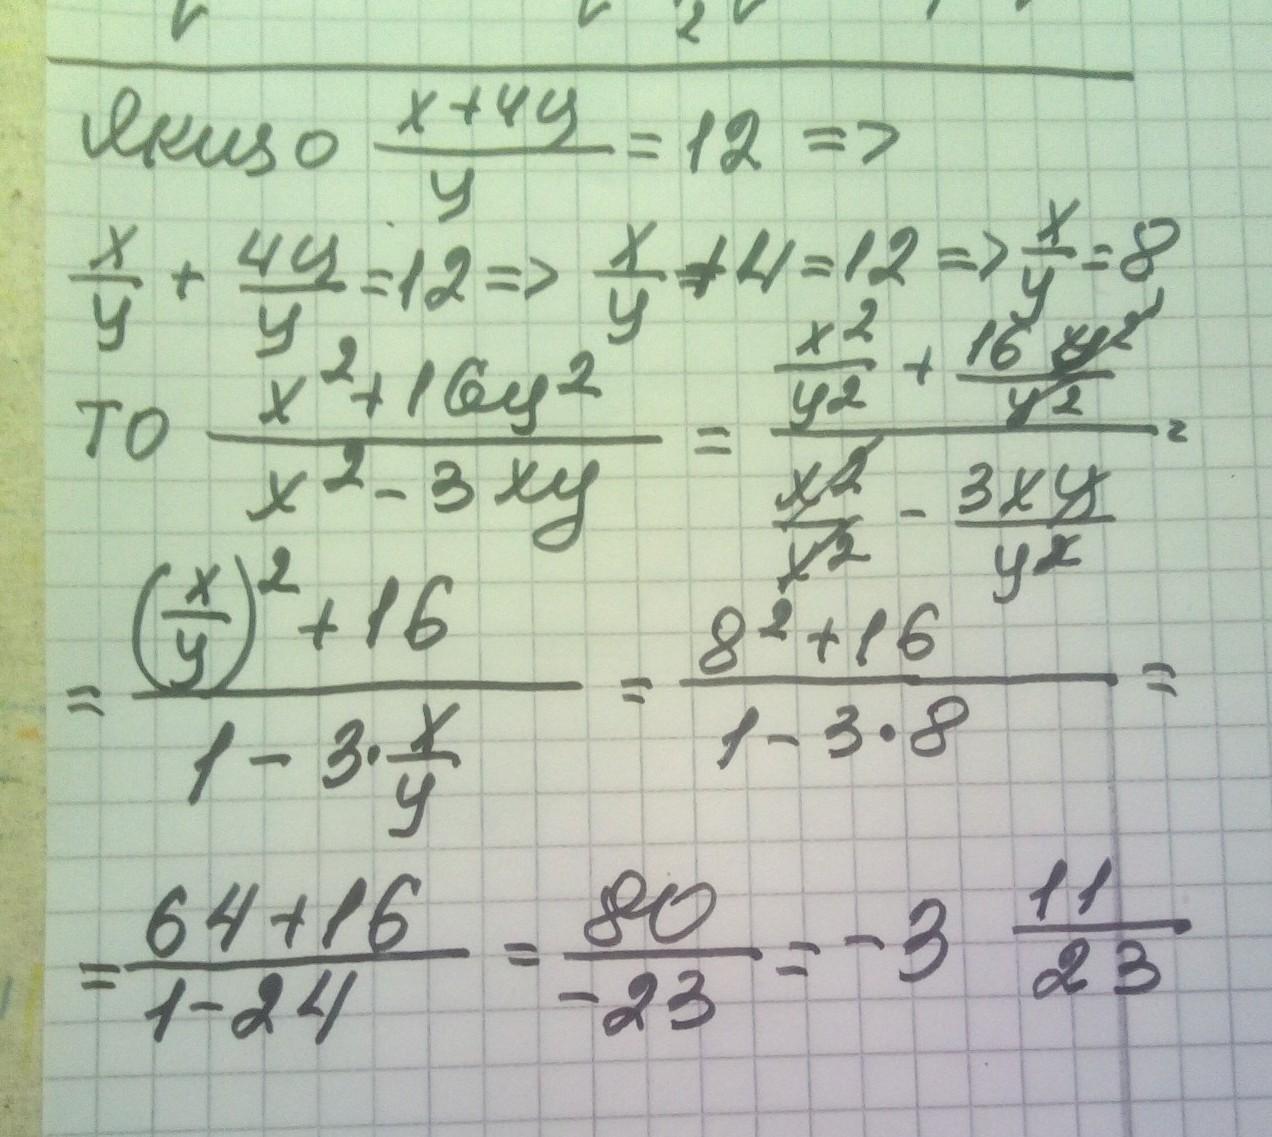 Якщо (x+4y)/y = 12 =>
x/y + 4y/y = 12 => x/y + 4 = 12 => x/y = 8
то (x²+16y²)/(x²-3xy) = (x²/y² + 16y²/y²)/(x²/x² - 3xy/y²) =
= ((x/y)²+16)/(1-3·x/y) = (8²+16)/(1-3·8) =
= (64+16)/(1-24) = 80/-23 = -3 11/23